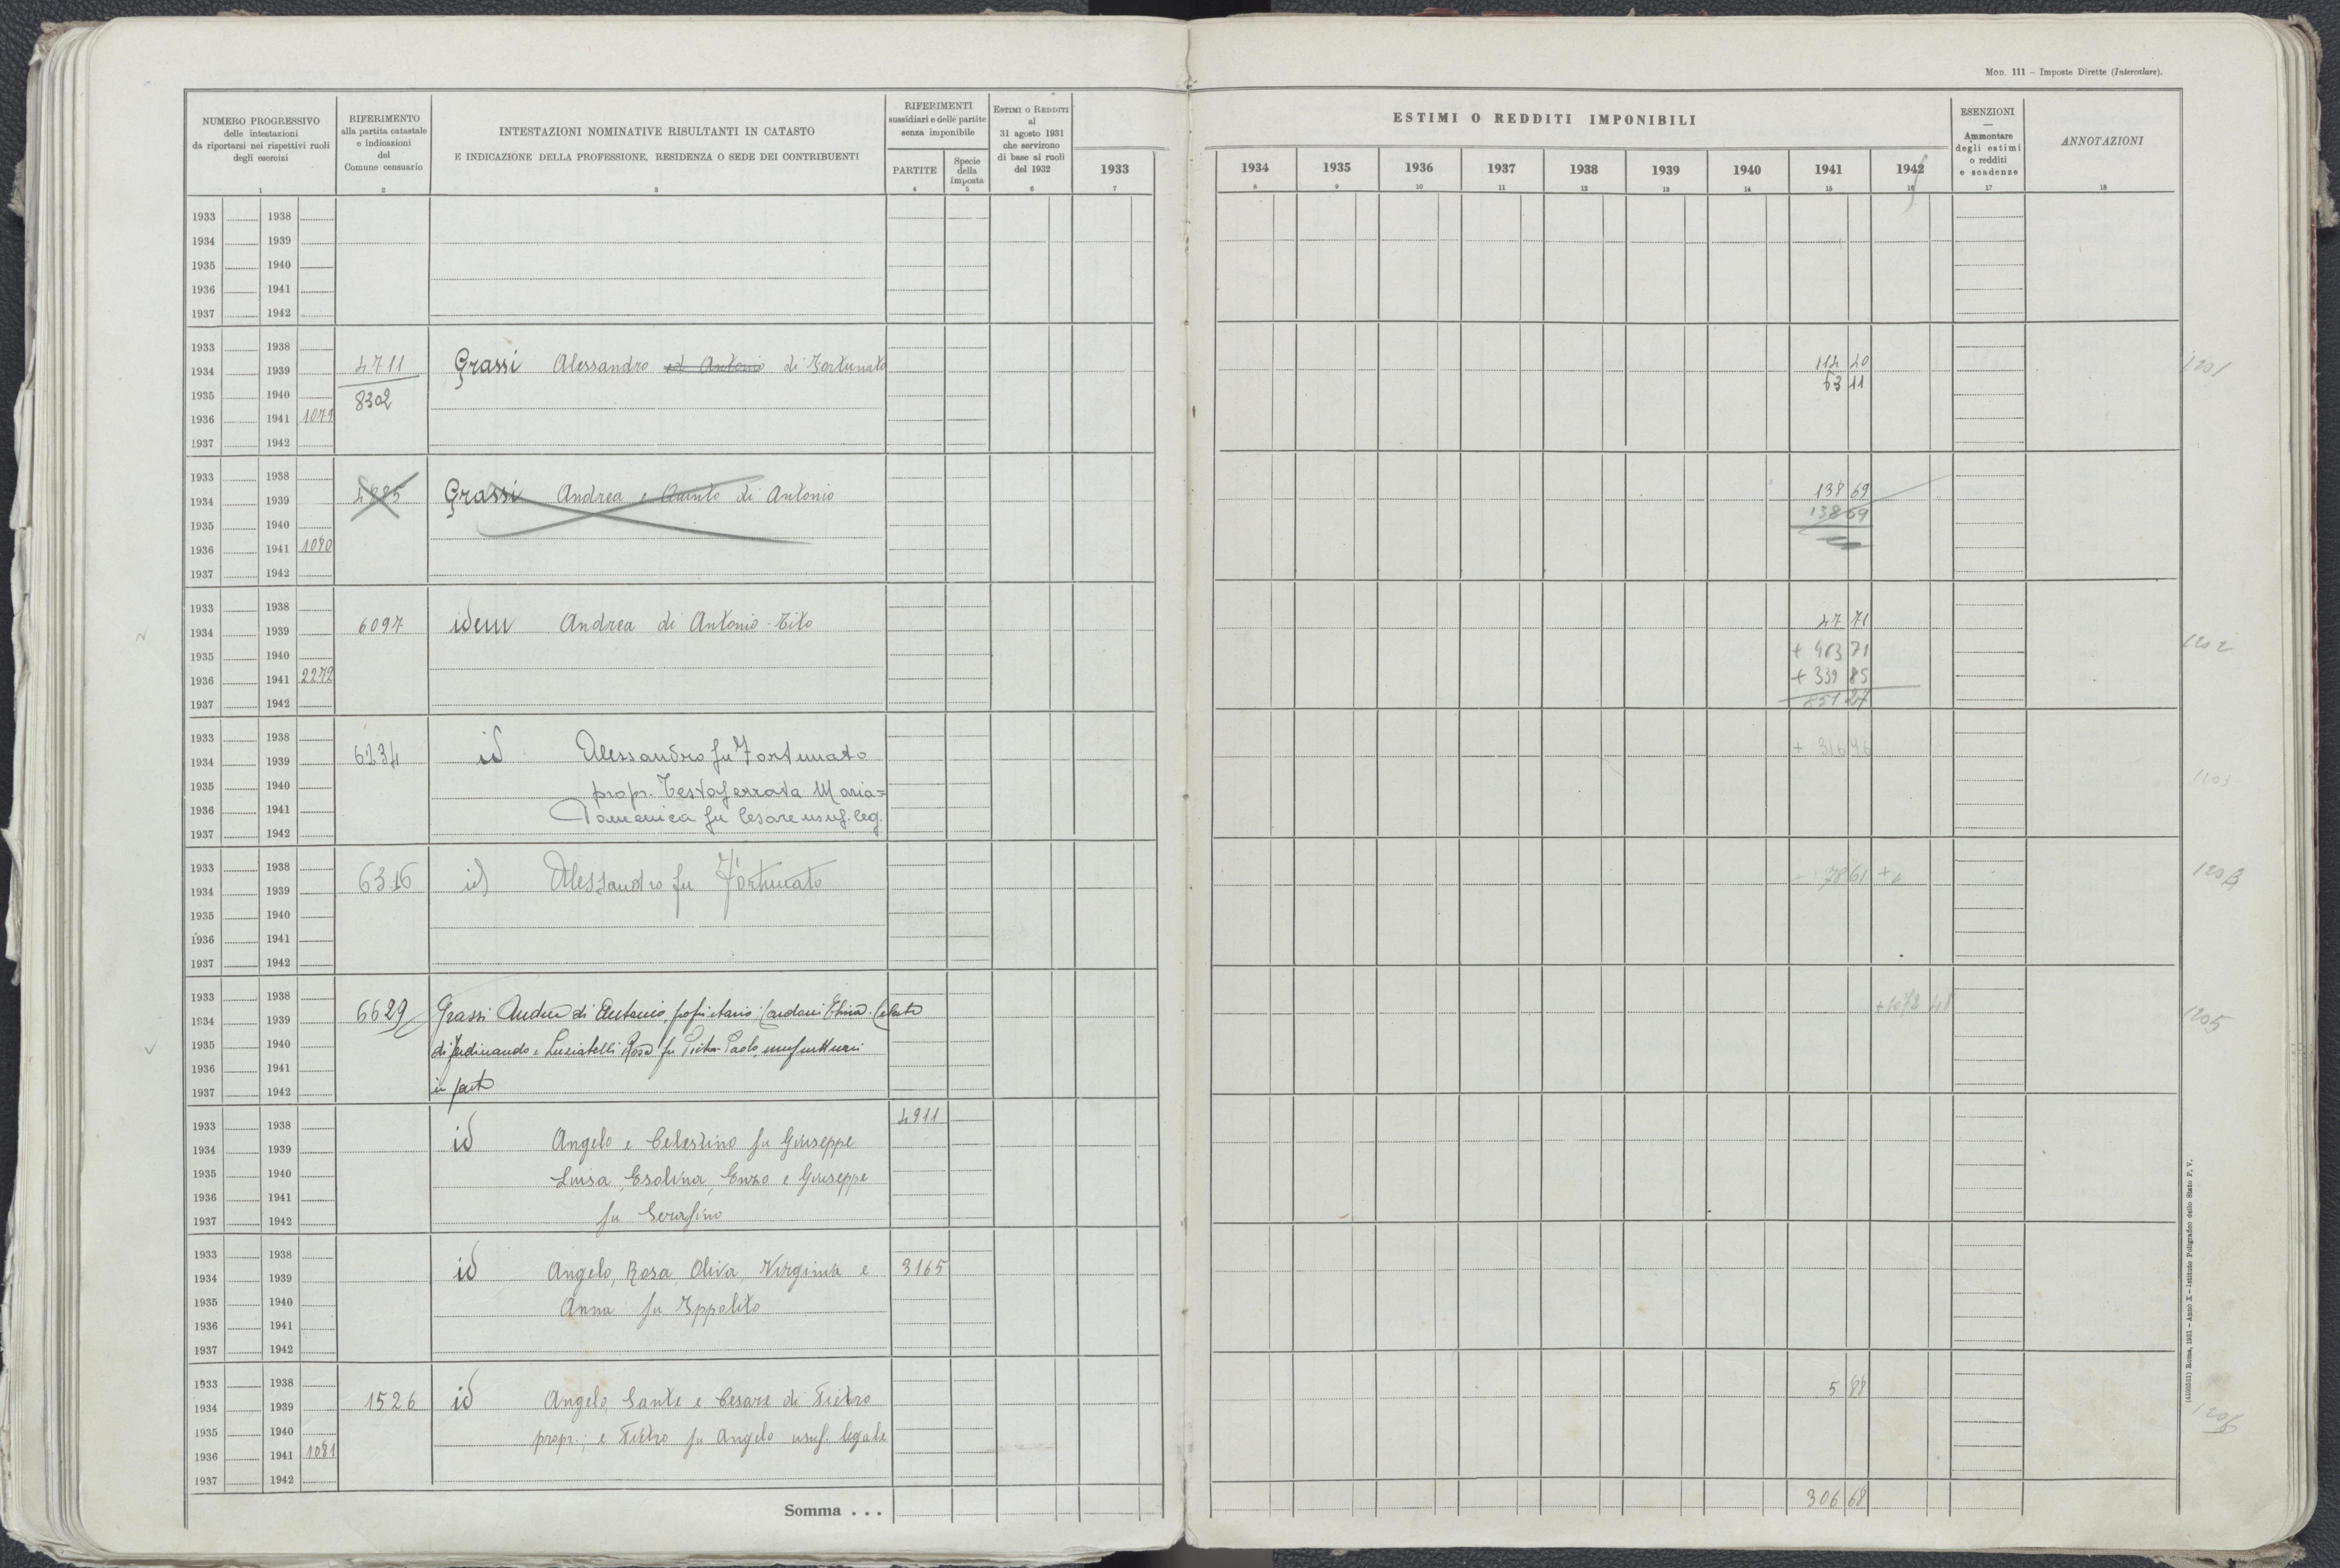 MOD. 111 - Imposte Dirette (Intercalare).
NUMERO PROGRESSIVO
delle intestazioni
da riportarsi nei rispettivi ruoli
degli esercizi
1
RIFERIMENTO
alla partita catastale
e indicazioni
del
Comune censuario
2
INTESTAZIONI NOMINATIVE RISULTANTI IN CATASTO
E INDICAZIONE DELLA PROFESSIONE, RESIDENZA O SEDE DEI CONTRIBUENTI
3
RIFERIMENTI
sussidiari e delle partite
senza imponibile
PARTITE
4
Specie
della
imposta
5
ESTIMI O REDDITI
al
31 agosto 1931
che servirono
di base ai ruoli
del 1932
6
1933
7
ESTIMI O REDDITI IMPONIBILI
1934 1935 1936 1937 1938 1939 1940 1941 1942
8 9 10 11 12 13 14 15 16
ESENZIONI
—
Ammontare
degli estimi
o redditi
e scadenze
17
ANNOTAZIONI
18
1933 1938
1934 1939
1935 1940
1936 1941
1937 1942
1933 1938
1934 1939 4711 Grassi Alessandro ed Antonio di Fortunato 114 20 1201
1935 1940 8302 63 11
1936 1941 1079
1937 1942
1933 1938
1934 1939 4885 Grassi Andrea e Quinto di Antonio 138 69
1935 1940 138 69
1936 1941 1080
1937 1942
1933 1938
1934 1939 6097 idem Andrea di Antonio-Tito 47 71 1202
1935 1940 + 463 71
1936 1941 2272 + 339 85
1937 1942 851 27
1933 1938
1934 1939 6234 id Alessandro fu Fortunato + 316 96 1203
1935 1940 propr. Testaferrata Maria=
1936 1941 Domenica fu Cesare usuf. leg.
1937 1942
1933 1938
1934 1939 6316 id Alessandro fu Fortunato 78 61 1204
1935 1940
1936 1941
1937 1942
1933 1938
1934 1939 6629 Grassi Andrea di Antonio, proprietario; Celeste + 1072 48 1205
1935 1940 di Ferdinando e Luciatelli Rosa fu Pietro Paolo, usufruttuari
1936 1941
1937 1942 in parte
4911
1933 1938
1934 1939 id Angelo e Celestino fu Giuseppe
1935 1940 Luisa, Esolina, Enzo e Giuseppe
1936 1941
1937 1942 fu Serafino
1933 1938
1934 1939 id Angelo, Rosa, Oliva, Virginia e 3165
1935 1940 Anna fu Ippolito
1936 1941
1937 1942
1933 1938
1934 1939 1526 id Angelo, Sante e Cesare di Pietro 5 88 1206
1935 1940 propr.; e Pietro fu Angelo usuf. legale
1936 1941 1081
1937 1942
Somma . . . 306 68
(4103521) Roma, 1931 - Anno X - Istituto Poligrafico dello Stato P. V.